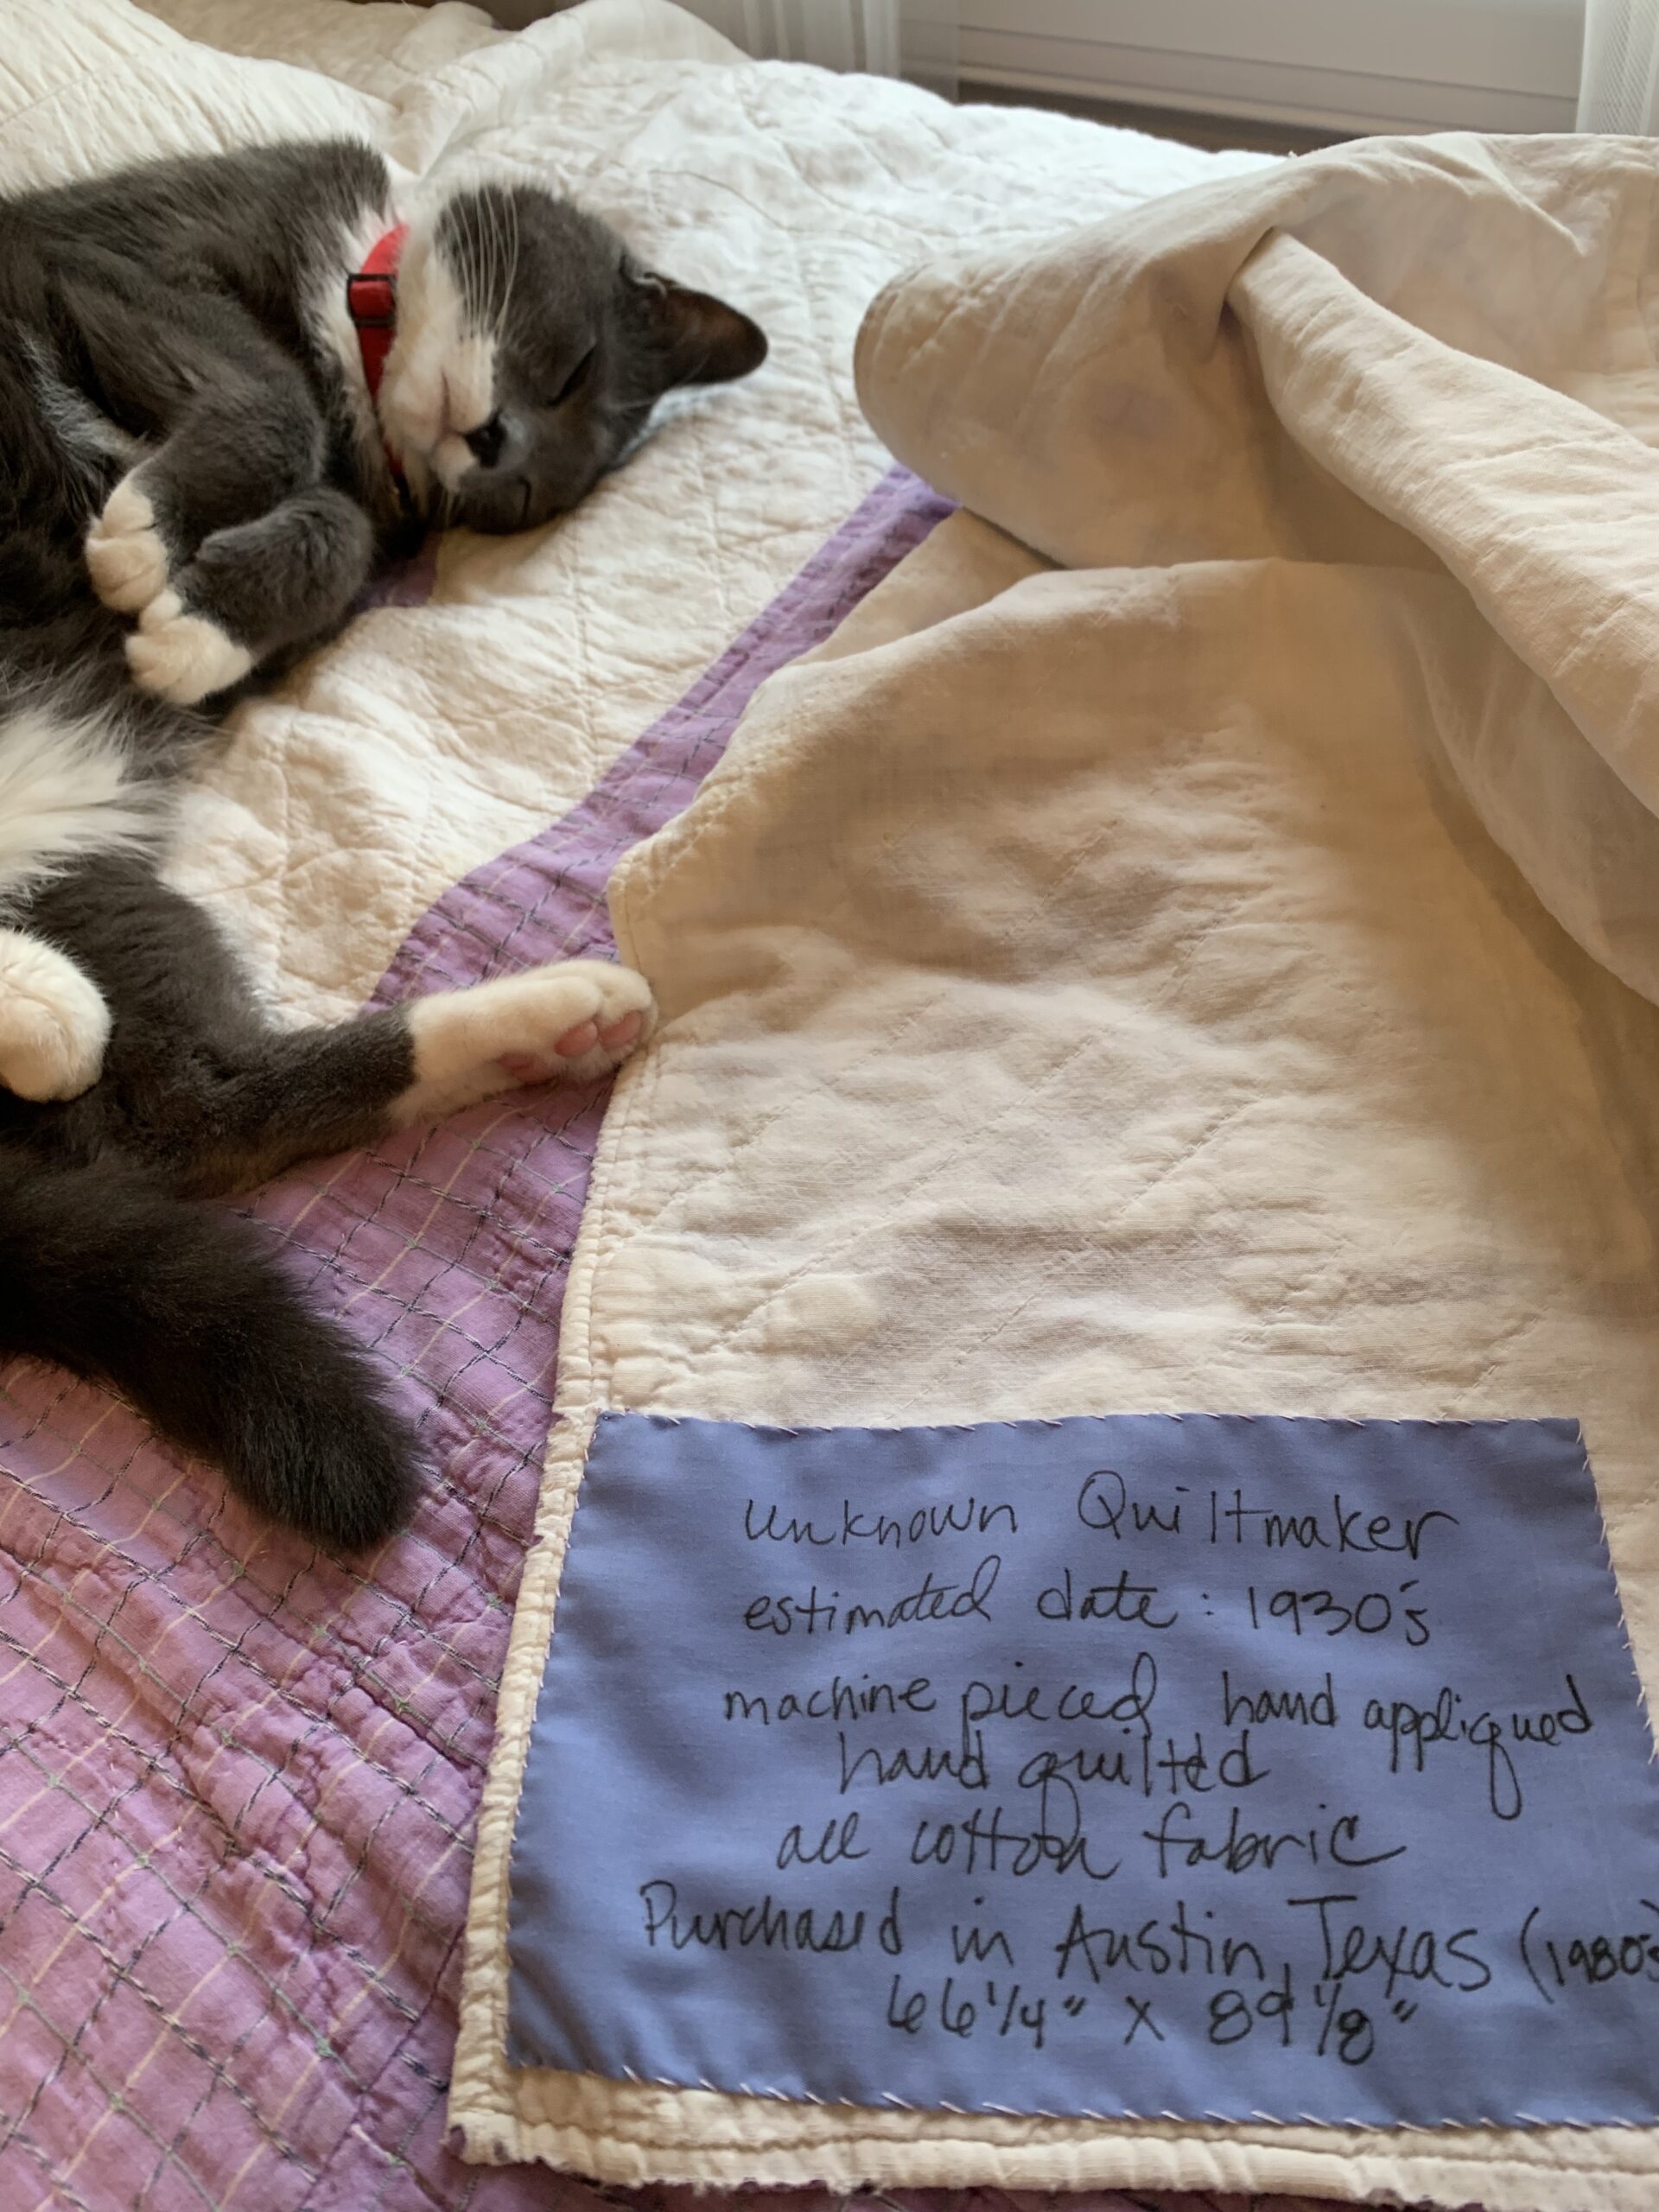 Unknown Quiltmaker
estimated date: 1930's
machine pieced hand appliqued
hand quilted
all cotton fabric
Purchased in Austin, Texas (1980's)
66 1/4" X 89 1/8"